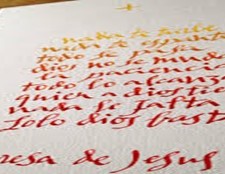 nada te turbe
nada te espante
todo se pasa
dios no se muda
la paciencia
todo lo alcanza
quien a dios tiene
nada le falta
Solo dios basta
resa de Jesus